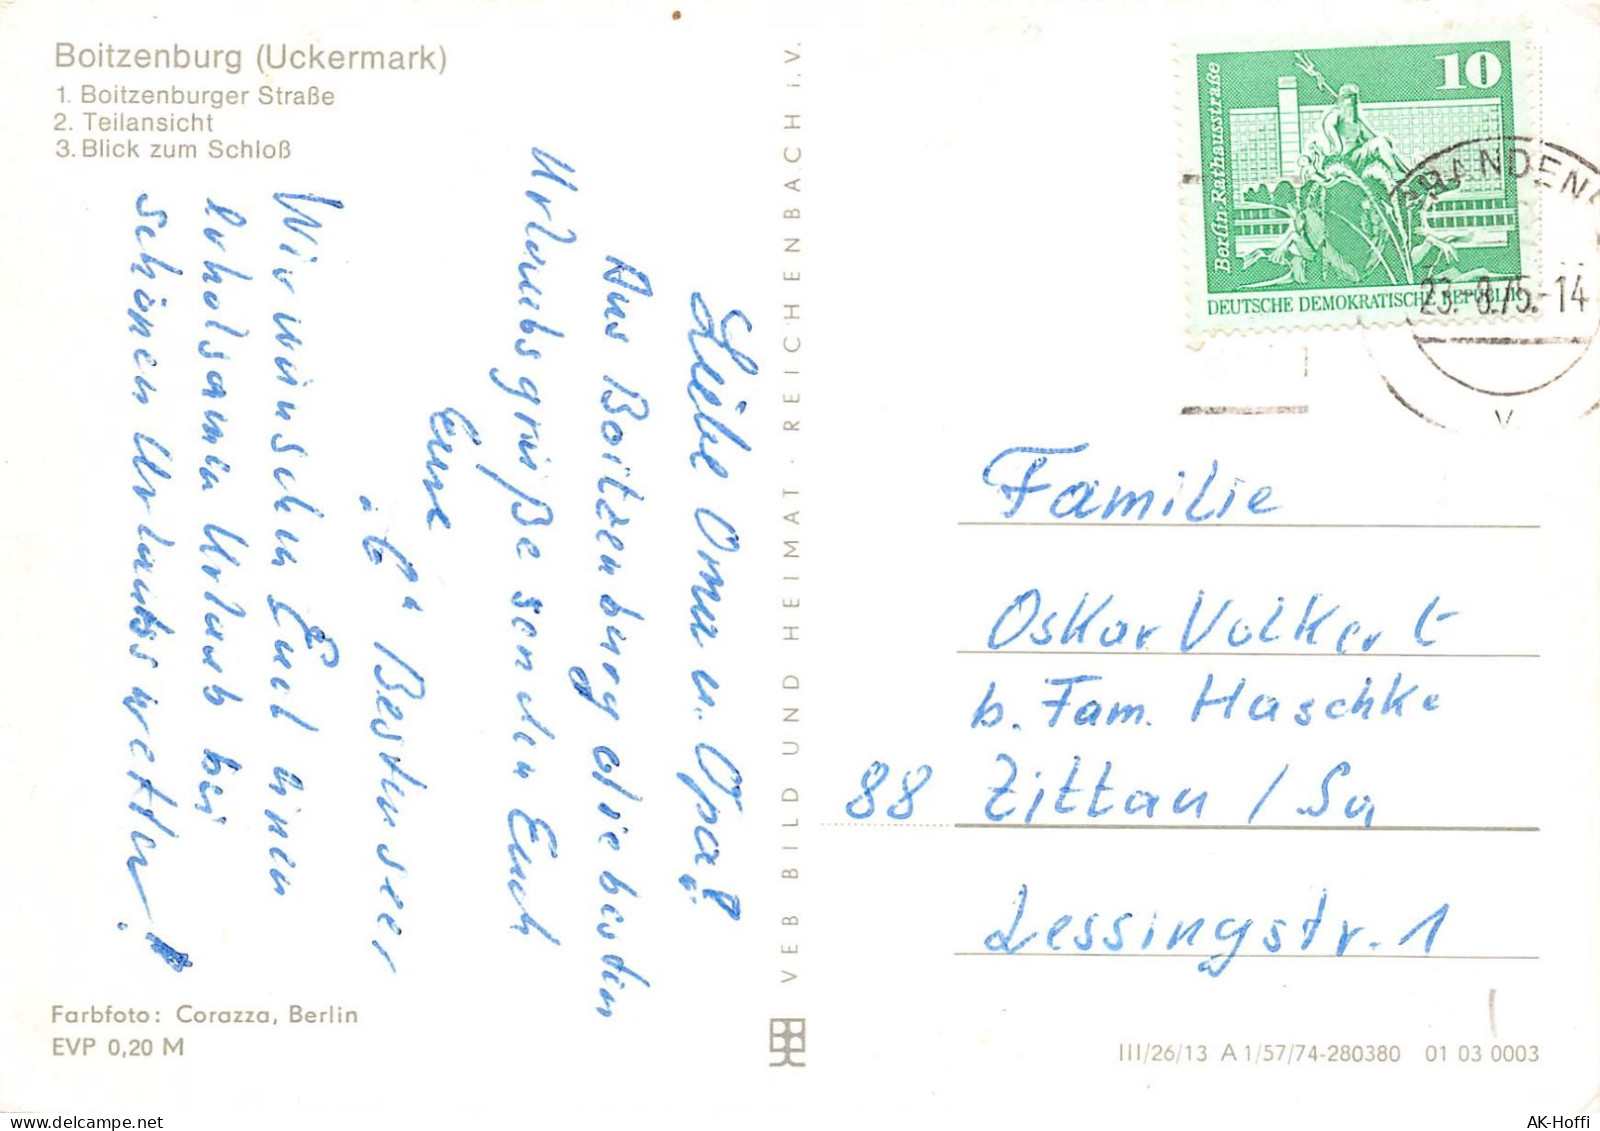 Boitzenburg (Uckermark)
1. Boitzenburger Straße
2. Teilansicht
3. Blick zum Schloß
Liebe Oma u. Opa!
Aus Boitzenburg die besten
Urlaubsgrüße senden Euch
Eure
6 Bestenseer
Wir wünschen Euch einen
erholsamen Urlaub bei
schönen Urlaubswetter!
Farbfoto: Corazza, Berlin
EVP 0,20 M
VEB BILD UND HEIMAT · REICHENBACH i. V.
10
Berlin, Rathausstraße
DEUTSCHE DEMOKRATISCHE REPUBLIK
BRANDENB
23.-8.75.-14
v
Familie
Oskar Volkert
b. Fam. Haschke
88 Zittau / Sa
Lessingstr. 1
III/26/13 A 1/57/74-280380 01 03 0003
AK-Hoffi
delcampe.net